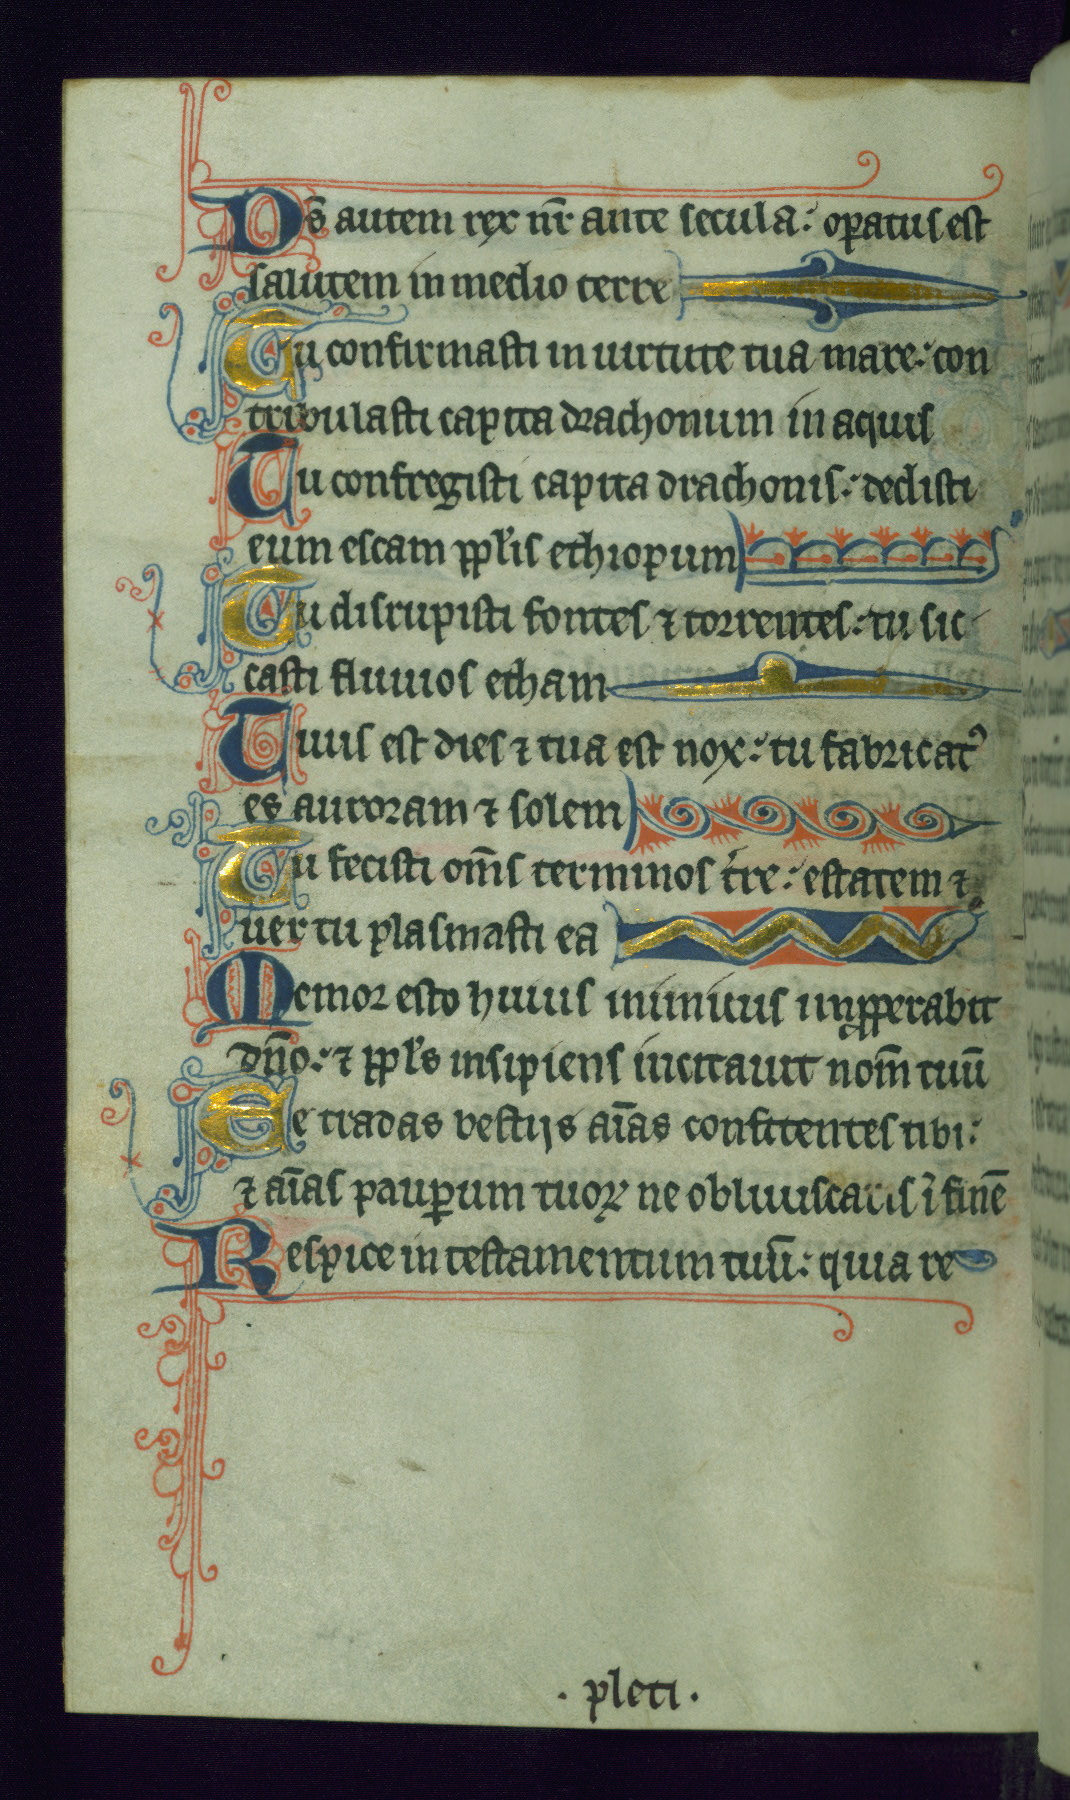 Ds̄ autem rex nr̄ ante secula: oꝑatus est
salutem in medio terre
Tu confirmasti in uirtute tua mare: con
tribulasti capita drachonum in aquis
Tu confregisti capita drachonis: dedisti
eum escam ppl̄is ethiopum
Tu disrupisti fontes ⁊ torrentes: tu sic
casti fluuios etham
Tuus est dies ⁊ tua est nox: tu fabricatꝰ
es auroram ⁊ solem
Tu fecisti om̄s terminos t̄re: estatem ⁊
uer tu plasmasti ea
Memor esto huius inimicus inꝓperabit
dn̄o: ⁊ ppl̄s insipiens incitauit nom̄ tuū
Ne tradas bestijs aīas confitentes tibi:
⁊ aīas pauꝑum tuoꝝ ne obliuiscaris ī finē
Respice in testamentum tuū: quia re
· pleti ·